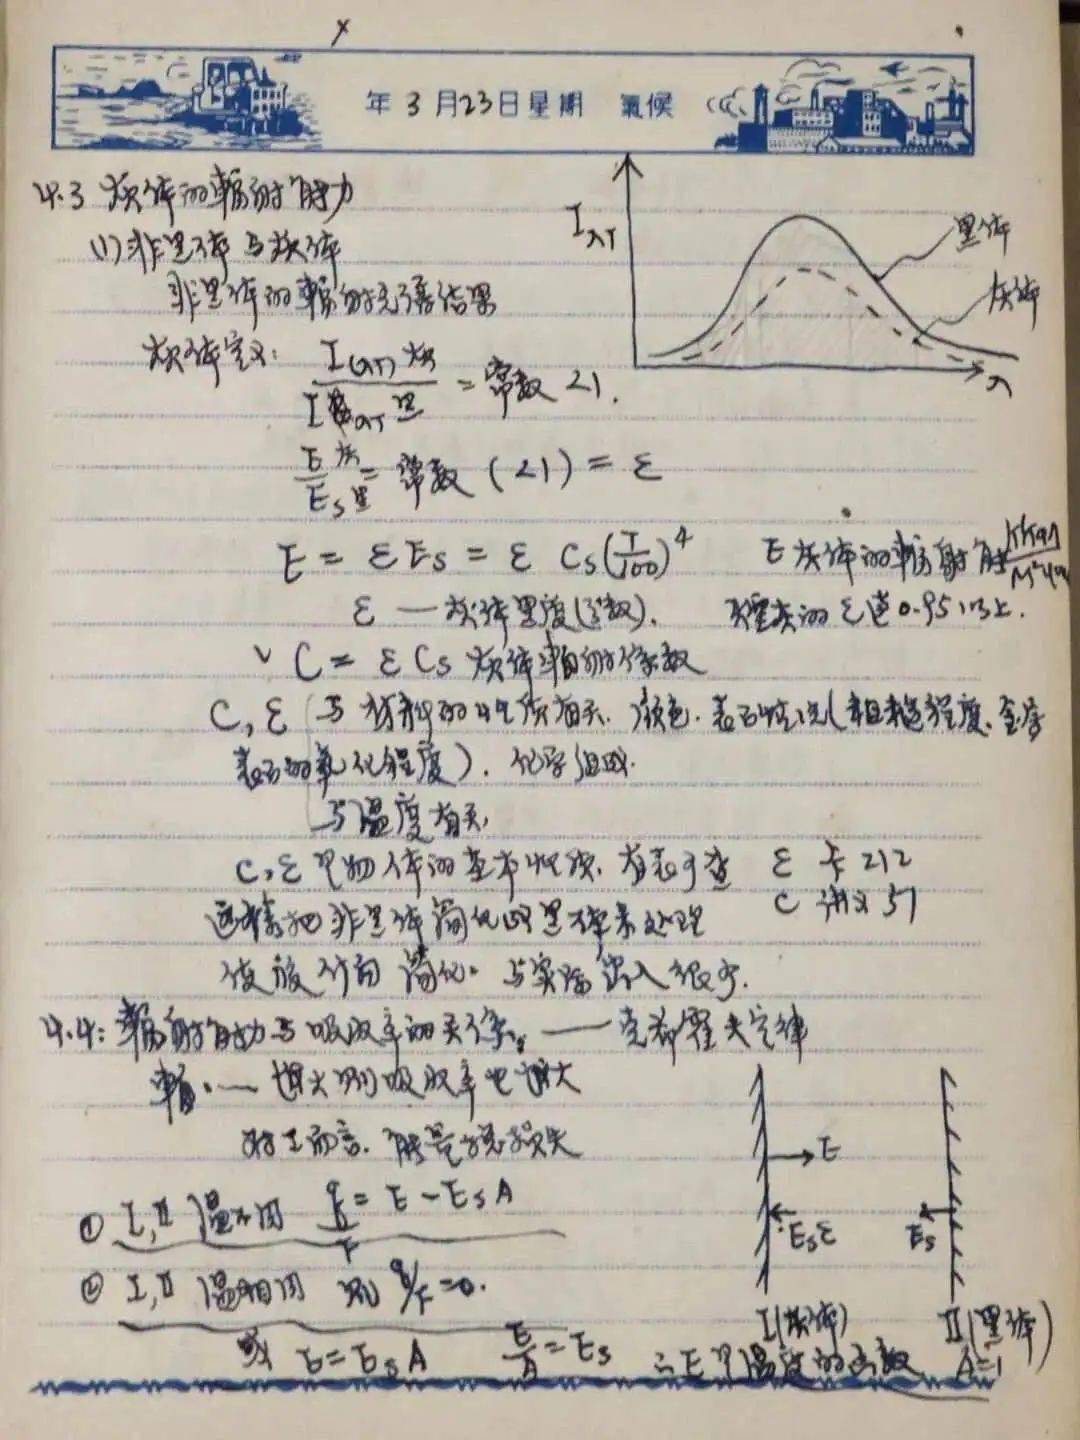 年3月23日星期 氣候
4.3 灰体的辐射能力
(1) 非黑体与灰体
非黑体的辐射光谱结果
灰体定义: I(λT)灰 / IλT黑 = 常数 <1.
E灰 / Es黑 = 常数 (<1) = ε
E = εEs = ε Cs(T/100)^4 E灰体的辐射能
ε — 灰体黑度(系数). ε达0.95以上.
C = εCs 灰体辐射系数
C, ε 与材料的性质有关. 颜色. 表面状况(粗糙程度. 金属
表面的氧化程度). 化学组成.
与温度有关.
C, ε 是物体的基本性质. 有表可查 ε 卡 212
C 讲义 51
这样把非黑体简化成黑体来处理
使计算简化. 与实际出入很少.
4.4: 辐射能力与吸收率的关系. —— 克希霍夫定律
辐. — 增大则吸收率也增大
对I而言. 能量总损失
① I, II 温不同 q/F = E - EsA
② I, II 温相同 则 q/F = 0.
或 E = EsA E/A = Es ∴E是温度的函数
IλT
黑体
灰体
λ
E
Esε
Es
I(灰体)
II(黑体)
A=1